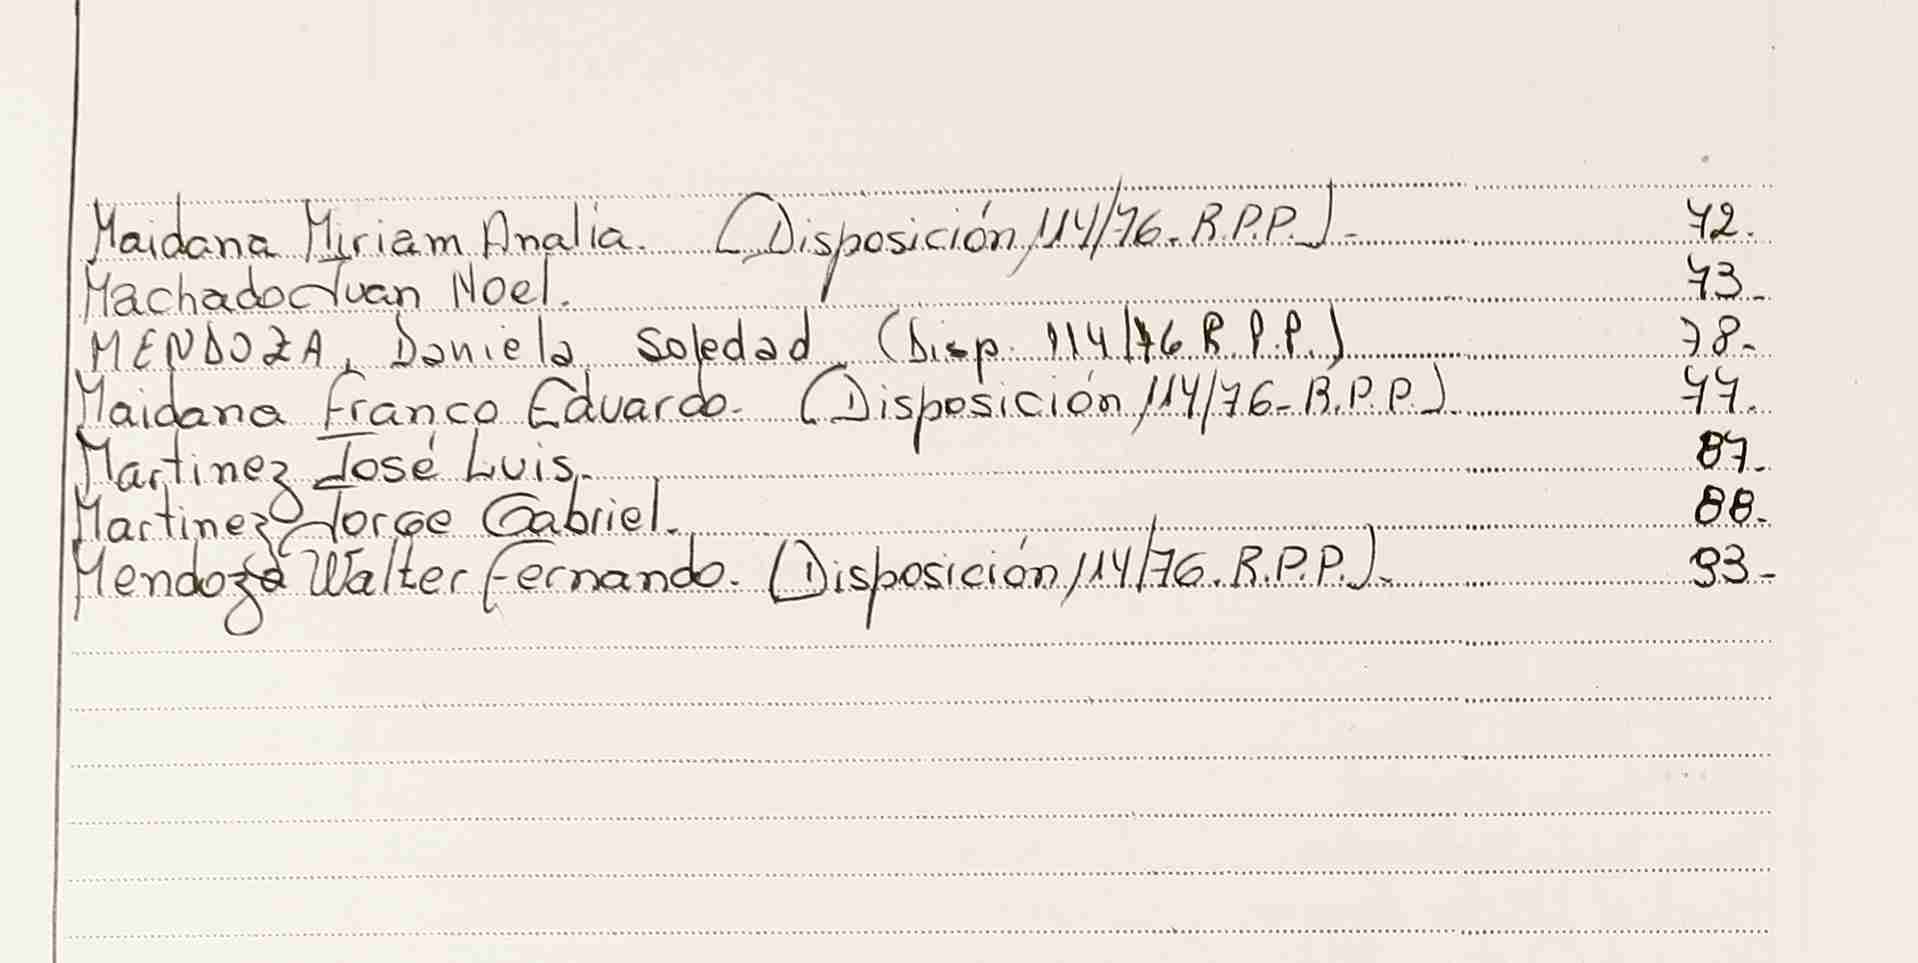 Maidana Miriam Analía. (Disposición 114/76. R.P.P.).- 72.
Machado Juan Noel. 73.-
MENDOZA, Daniela Soledad (Disp. 114/76 R.P.P.) 78.-
Maidana Franco Eduardo. (Disposición 114/76- R.P.P.). 77.
Martinez José Luis.- 87.-
Martinez Jorge Gabriel.- 88.-
Mendoza Walter Fernando. (Disposición 114/76. R.P.P.).- 93.-